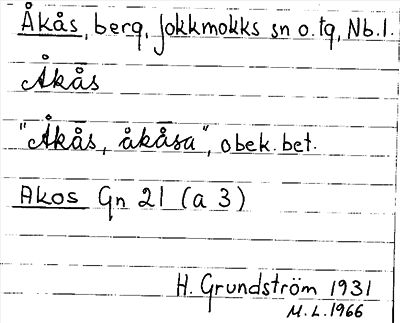 Åkås, berg, Jokkmokks sn o. tg, Nb. l.
Åkås
"Åkås, åkåsa", obek. bet.
Akos Gn 21 (a 3)
H. Grundström 1931
M. L. 1966